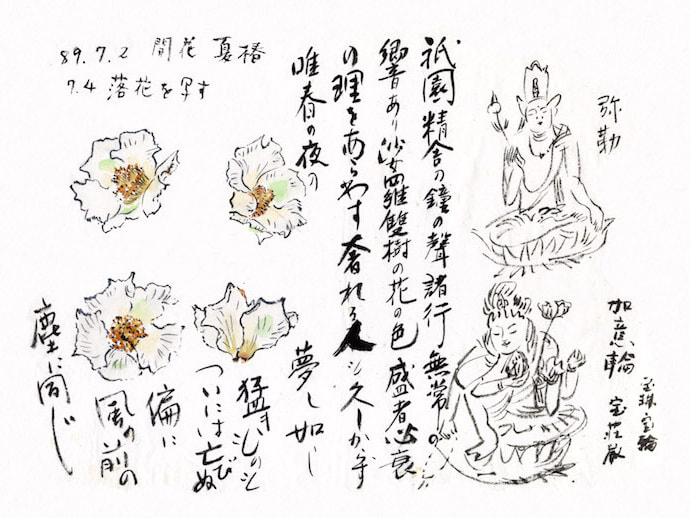 89.7.2 開花 夏椿
7.4 落花を写す
弥勒
如意輪 宝荘厳
宝珠 宝輪
祇園精舎の鐘の聲諸行無常の
響あり沙羅雙樹の花の色盛者必衰
の理をあらわす奢れる人も久しからず
唯春の夜の
夢し如し
猛きものも
ついには亡びぬ
偏に
風の前の
塵に同じ